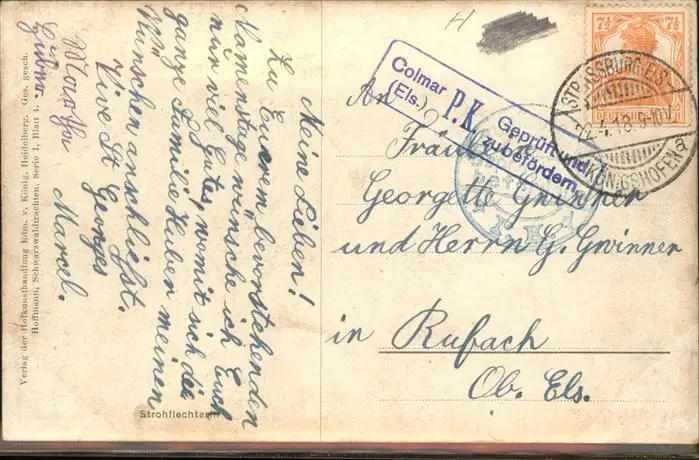 Meine Lieben!
Zu Euerem bevorstehenden
Namenstage wünsche ich Euch
nur viel Gutes, womit sich die
ganze Familie Huber meinen
Wünschen anschließt.
Vive St Georges
Marcel.
Martha
Strohflechterin
Verlag der Hofkunsthandlung Edm. v. König, Heidelberg. Ges. gesch.
Hoffmann, Schwarzwaldtrachten, Serie 1, Blatt 4.
An
Fräulein
Georgette Gwinner
und Herrn G. Gwinner
in Rufach
Ob. Els.
Colmar
(Els.)
P.K.
Geprüft und
zu befördern
7½ 7½
DEUTSCHES
STRASSBURG (ELS.)
4.18.9-10V.
KÖNIGSHOFEN
a